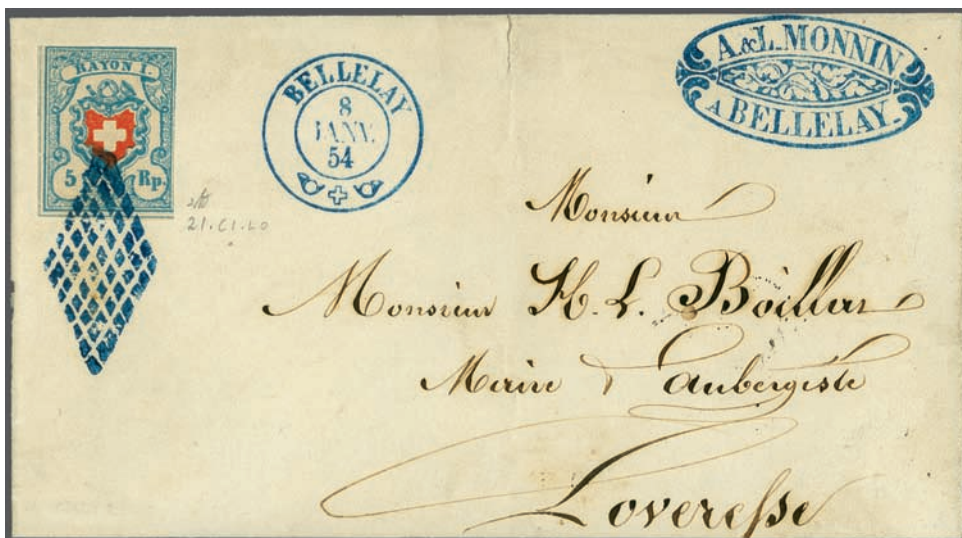 RAYON I.
5 Rp.
BELLELAY
8
JANV.
54
A. & L. MONNIN
A BELLELAY.
21.C1.LO
Monsieur
Monsieur H. L. Boillat
Maire & aubergiste
Loveresse